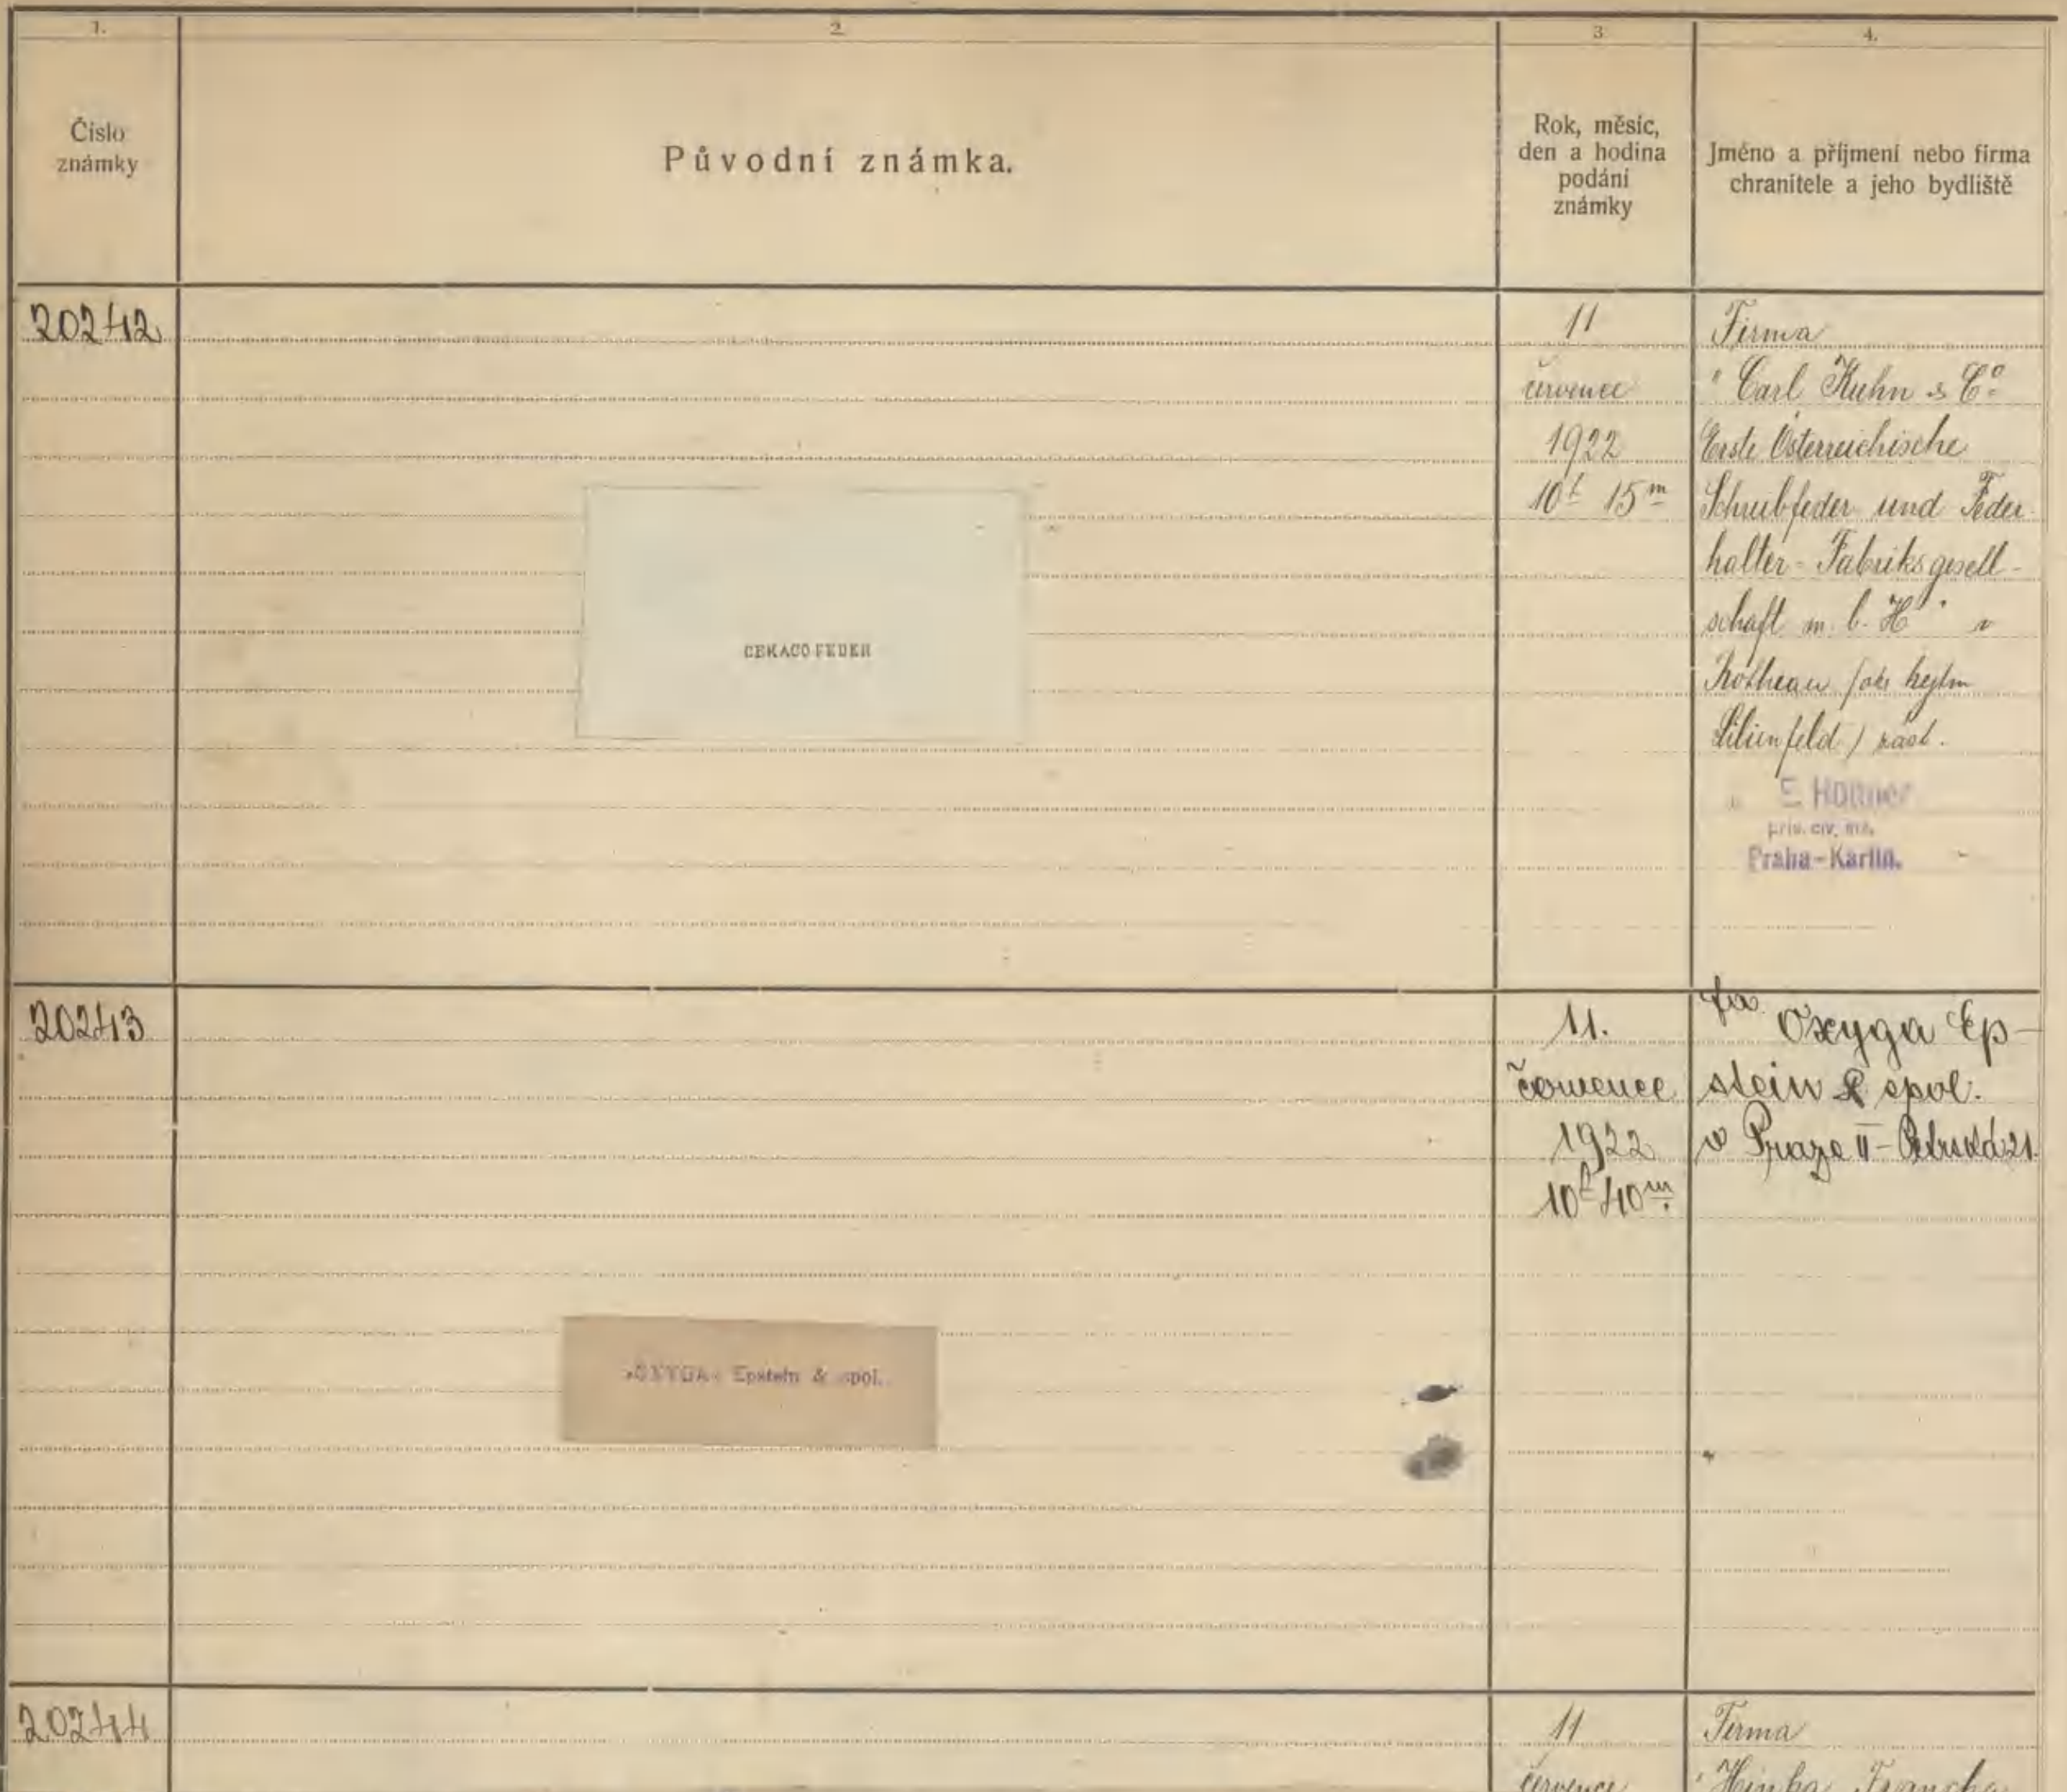 1.
2
3
4.
Číslo
známky
Původní známka.
Rok, měsíc,
den a hodina
podání
známky
Jméno a příjmení nebo firma
chranitele a jeho bydliště
20242
CEKACO FEDER
11
července
1922
10h 15m
Firma
"Carl Kuhn & Co
Erste Österreichische
Schreibfeder und Feder-
halter-Fabriksgesell-
schaft m. b. H" v
Rotheau /okr. hejtm
Lilienfeld/ zast.
Praha-Karlín.
20243
»OXYGA« Epstein & spol.
11.
července
1922
10h 40m
fa Oxyga Ep-
stein & spol.
v Praze II-Petrská 21.
20244
11
července
Firma